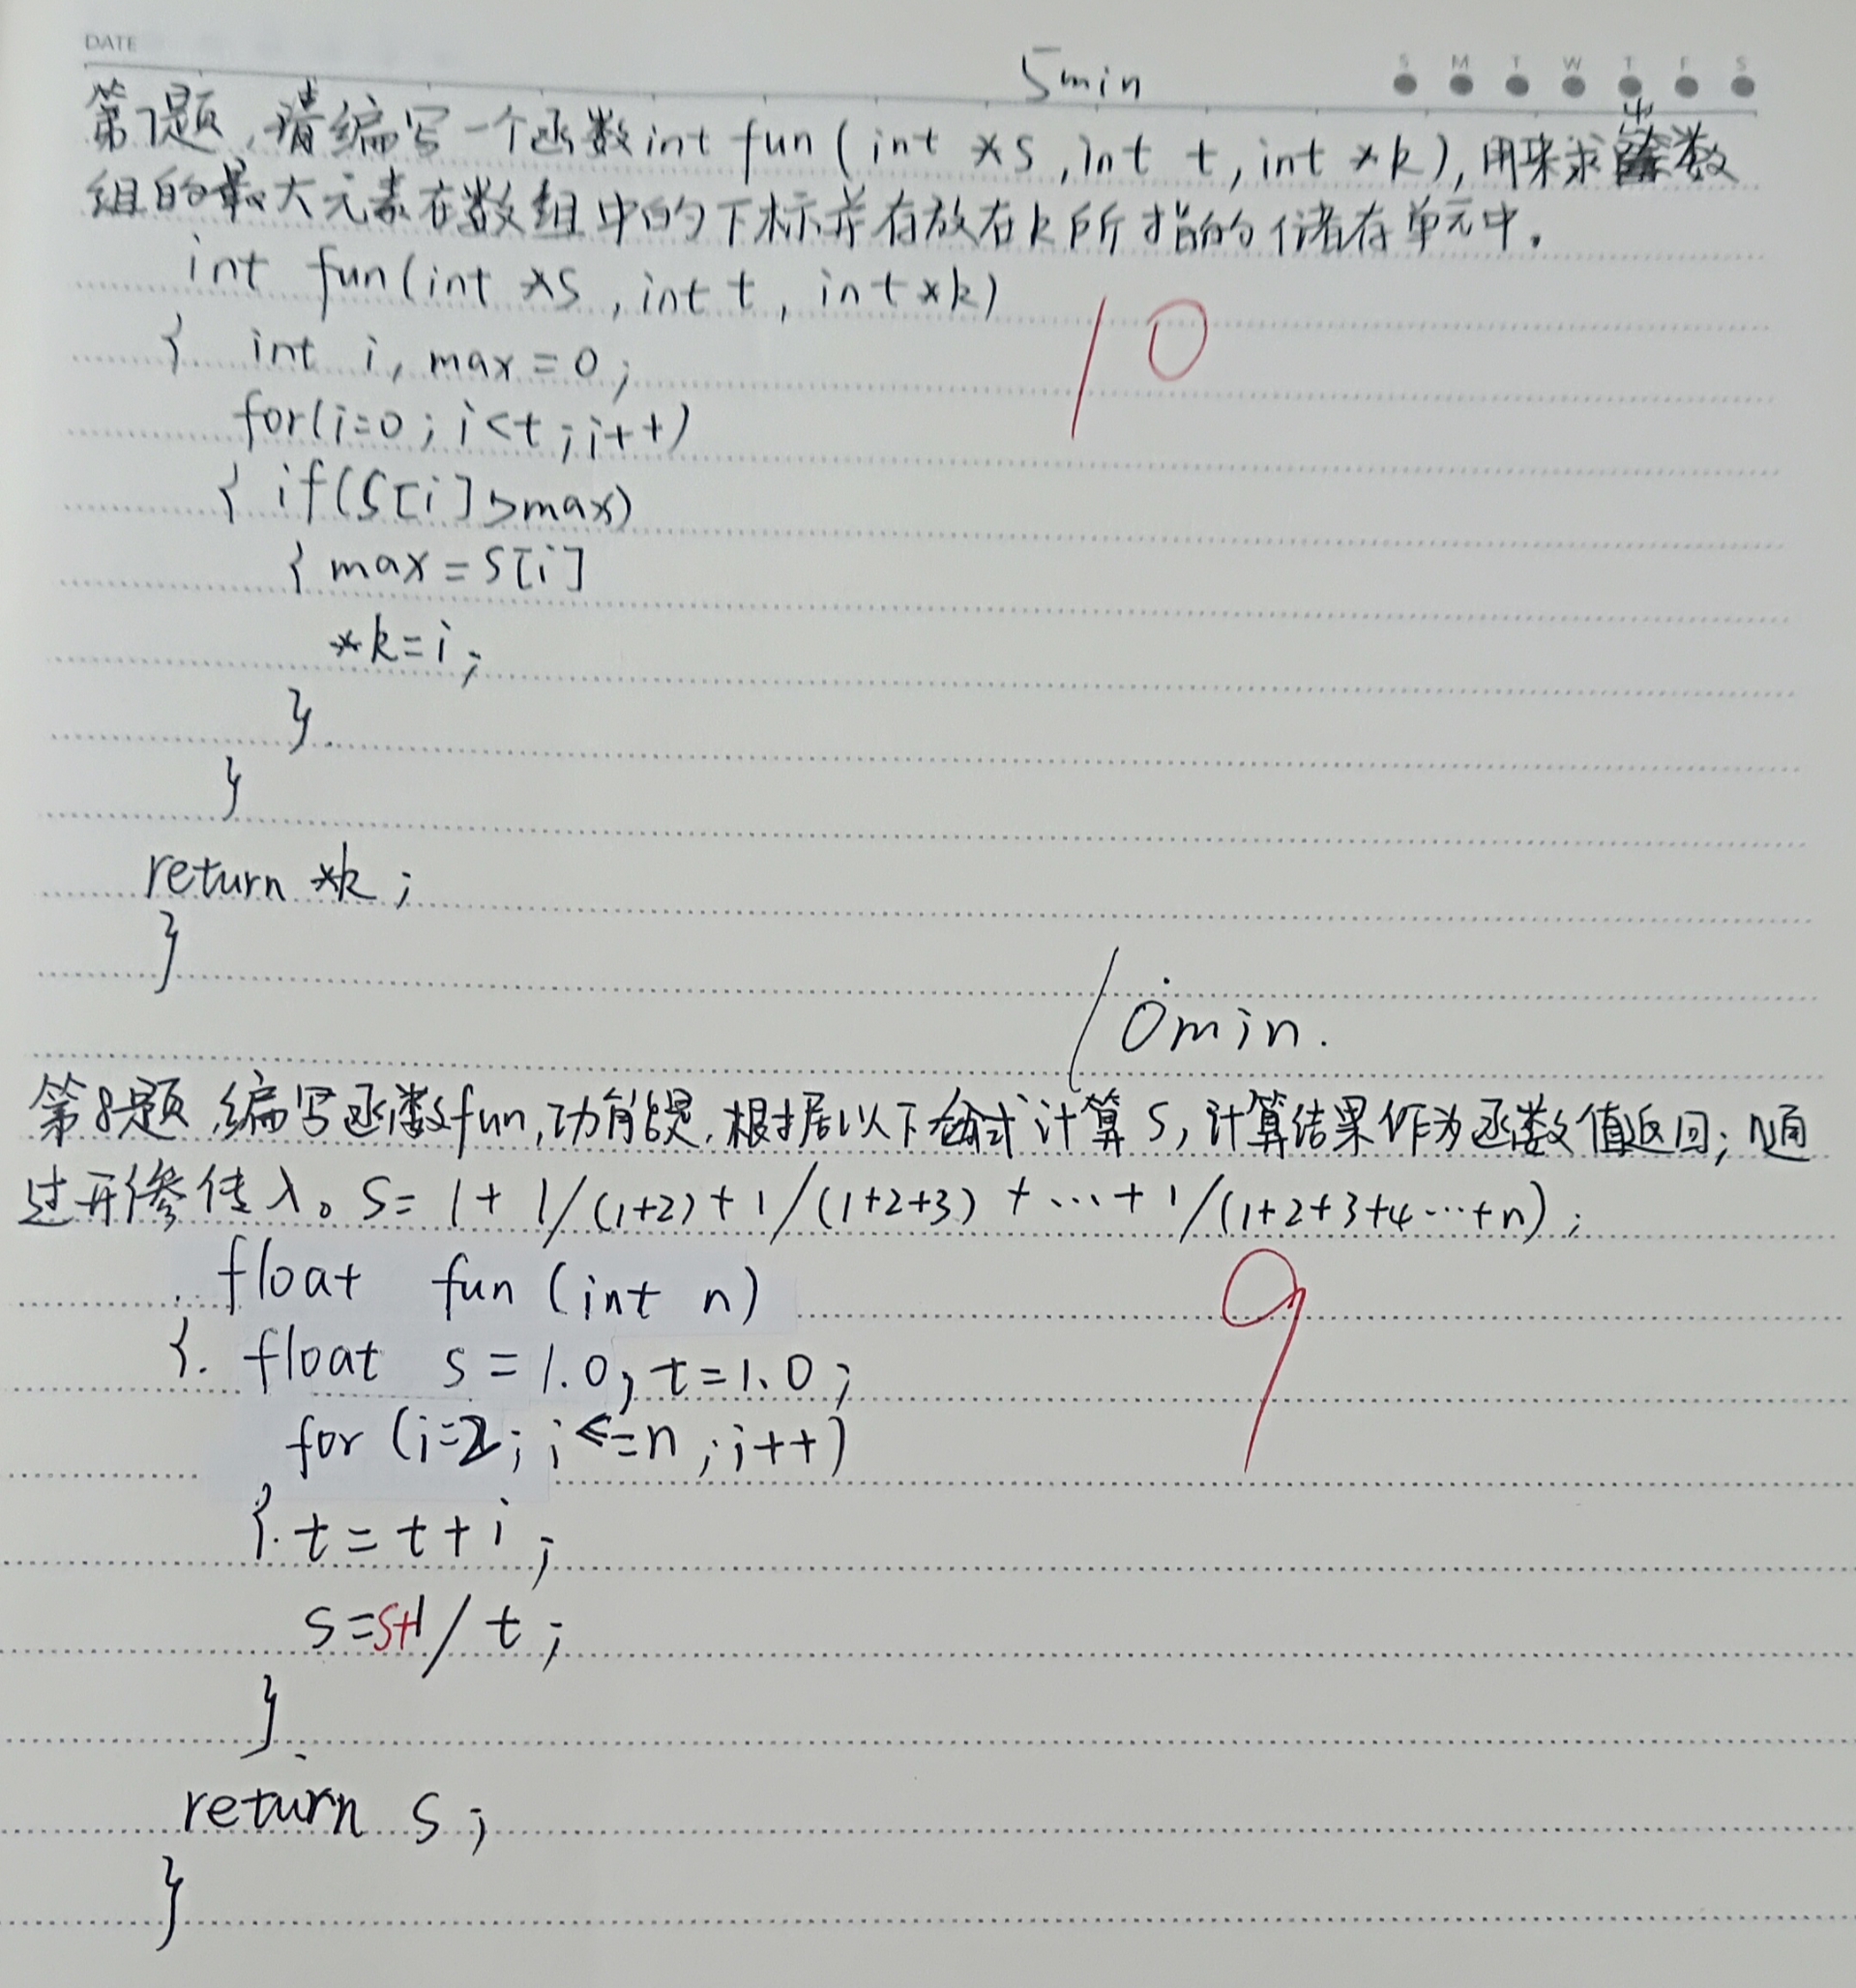 DATE
5min
S M T W T F S
第7题,请编写一个函数int fun(int *s,int t,int *k),用来求出数
组的最大元素在数组中的下标并存放在k所指的储存单元中.
int fun(int *s,int t,int *k)
10
{ int i, max=0;
for(i=0;i<t;i++)
{ if(s[i]>max)
{ max=s[i]
*k=i;
}
}
return *k;
}
10min.
第8题,编写函数fun,功能是.根据以下公式计算S,计算结果作为函数值返回;n通
过形参传入。S=1+1/(1+2)+1/(1+2+3)+…+1/(1+2+3+4…+n);
float fun(int n)
9
{. float s=1.0,t=1.0;
for(i=2;i<=n;i++)
{. t=t+i;
s=s+1/t;
}
return s;
}